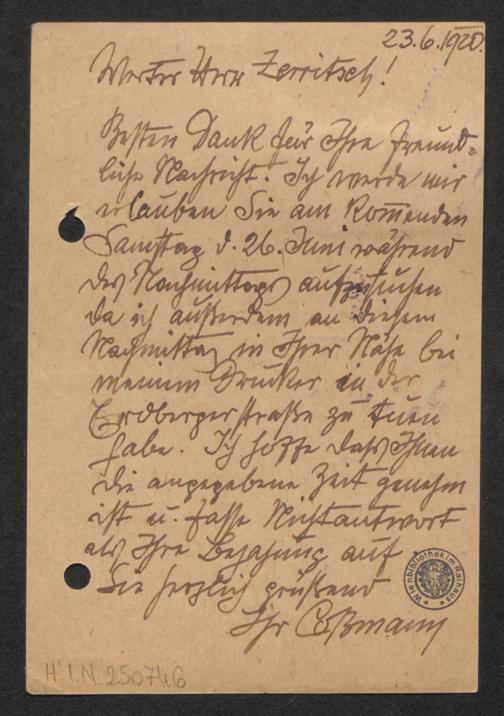 23.6.1920.
Werter Herr Zerritsch!
Besten Dank für Ihre freund-
liche Nachricht. Ich werde mir
erlauben Sie am kom̅enden
Samstag d. 26. Juni während
des Nachmittags aufzusuchen
da ich außerdem an diesem
Nachmittag in Ihrer Nähe bei
meinem Drucker in der
Erdbergerstraße zu tuen
habe. Ich hoffe dass Ihnen
die angegebene Zeit genehm
ist u. fasse Nichtantwort
als Ihre Bejahung auf
Sie herzlich grüßend
Ihr Coßmann
Wienbibliothek im Rathaus
H.I.N. 250746